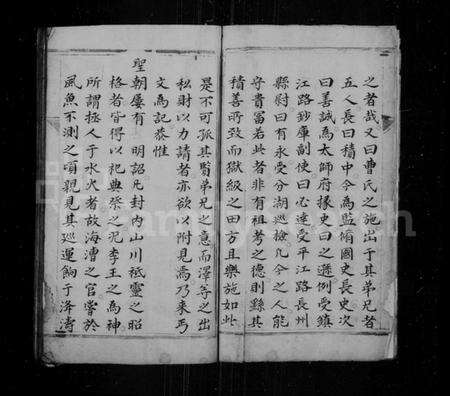 之者哉又曰曹氏之施出于其弟兄者
五人長曰積中今為監脩國史長史次
曰善誠為太師府掾史曰之遜例受鎮
江路鈔庫副使曰心逹受平江路長州
縣尉曰有永受分湖巡檢凡今之人能
守貴富若此者非有祖考之德則繇其
積善所致而獄級之田方且樂施如此
是不可孤其賢弟兄之意而澤等之出
私財以力請者亦欲以附見焉乃来丐
文為記恭惟
聖朝屢有 明詔凡封内山川祗靈之昭
格者皆得以祀典榮之况李王之為神
所謂拯人于水火者故海漕之官嘗於
風魚不測之頃親見其巡運餉于洚濤